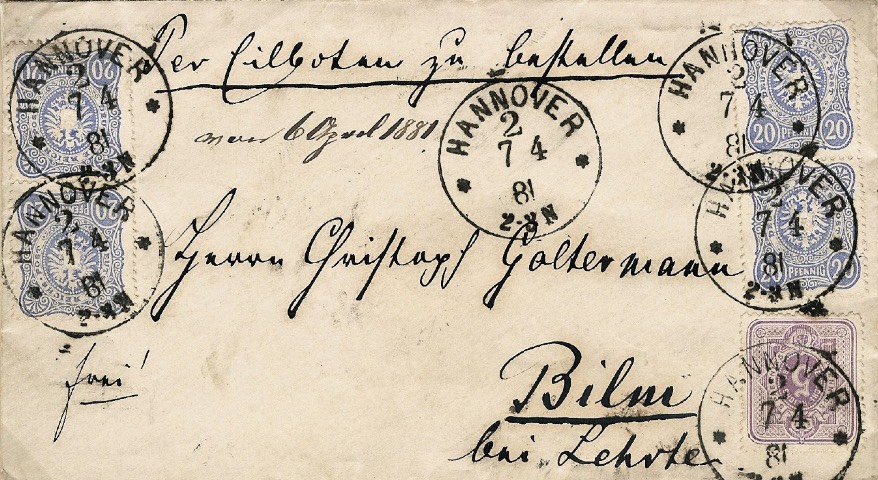 Per Eilboten zu bestellen
von 6 April 1881
Herrn Christoph Goltermann
Bilm
bei Lehrte
frei!
HANNOVER
2
7 4
81
2-3N
HANNOVER
2
7 4
81
2-3N
HANNOVER
2
7 4
81
2-3N
HANNOVER
2
7 4
81
2-3N
HANNOVER
2
7 4
81
2-3N
HANNOVER
2
7 4
81
20 PFENNIG 20
20 20
20 20
PFENNIG
5